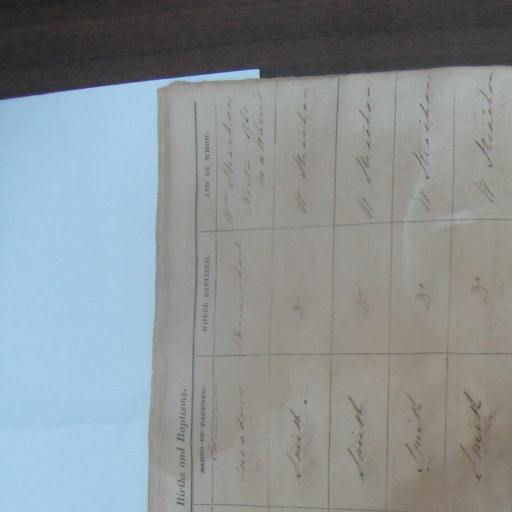 Births and Baptisms.
NAMES OF PARENTS. WHERE BAPTIZED. AND BY WHOM.
Meadows Wm Strachan
Matthew's
Smith. Do W Strachan
Smith Do W Strachan
Smith Do W Strachan
Smith Do W. Strachan